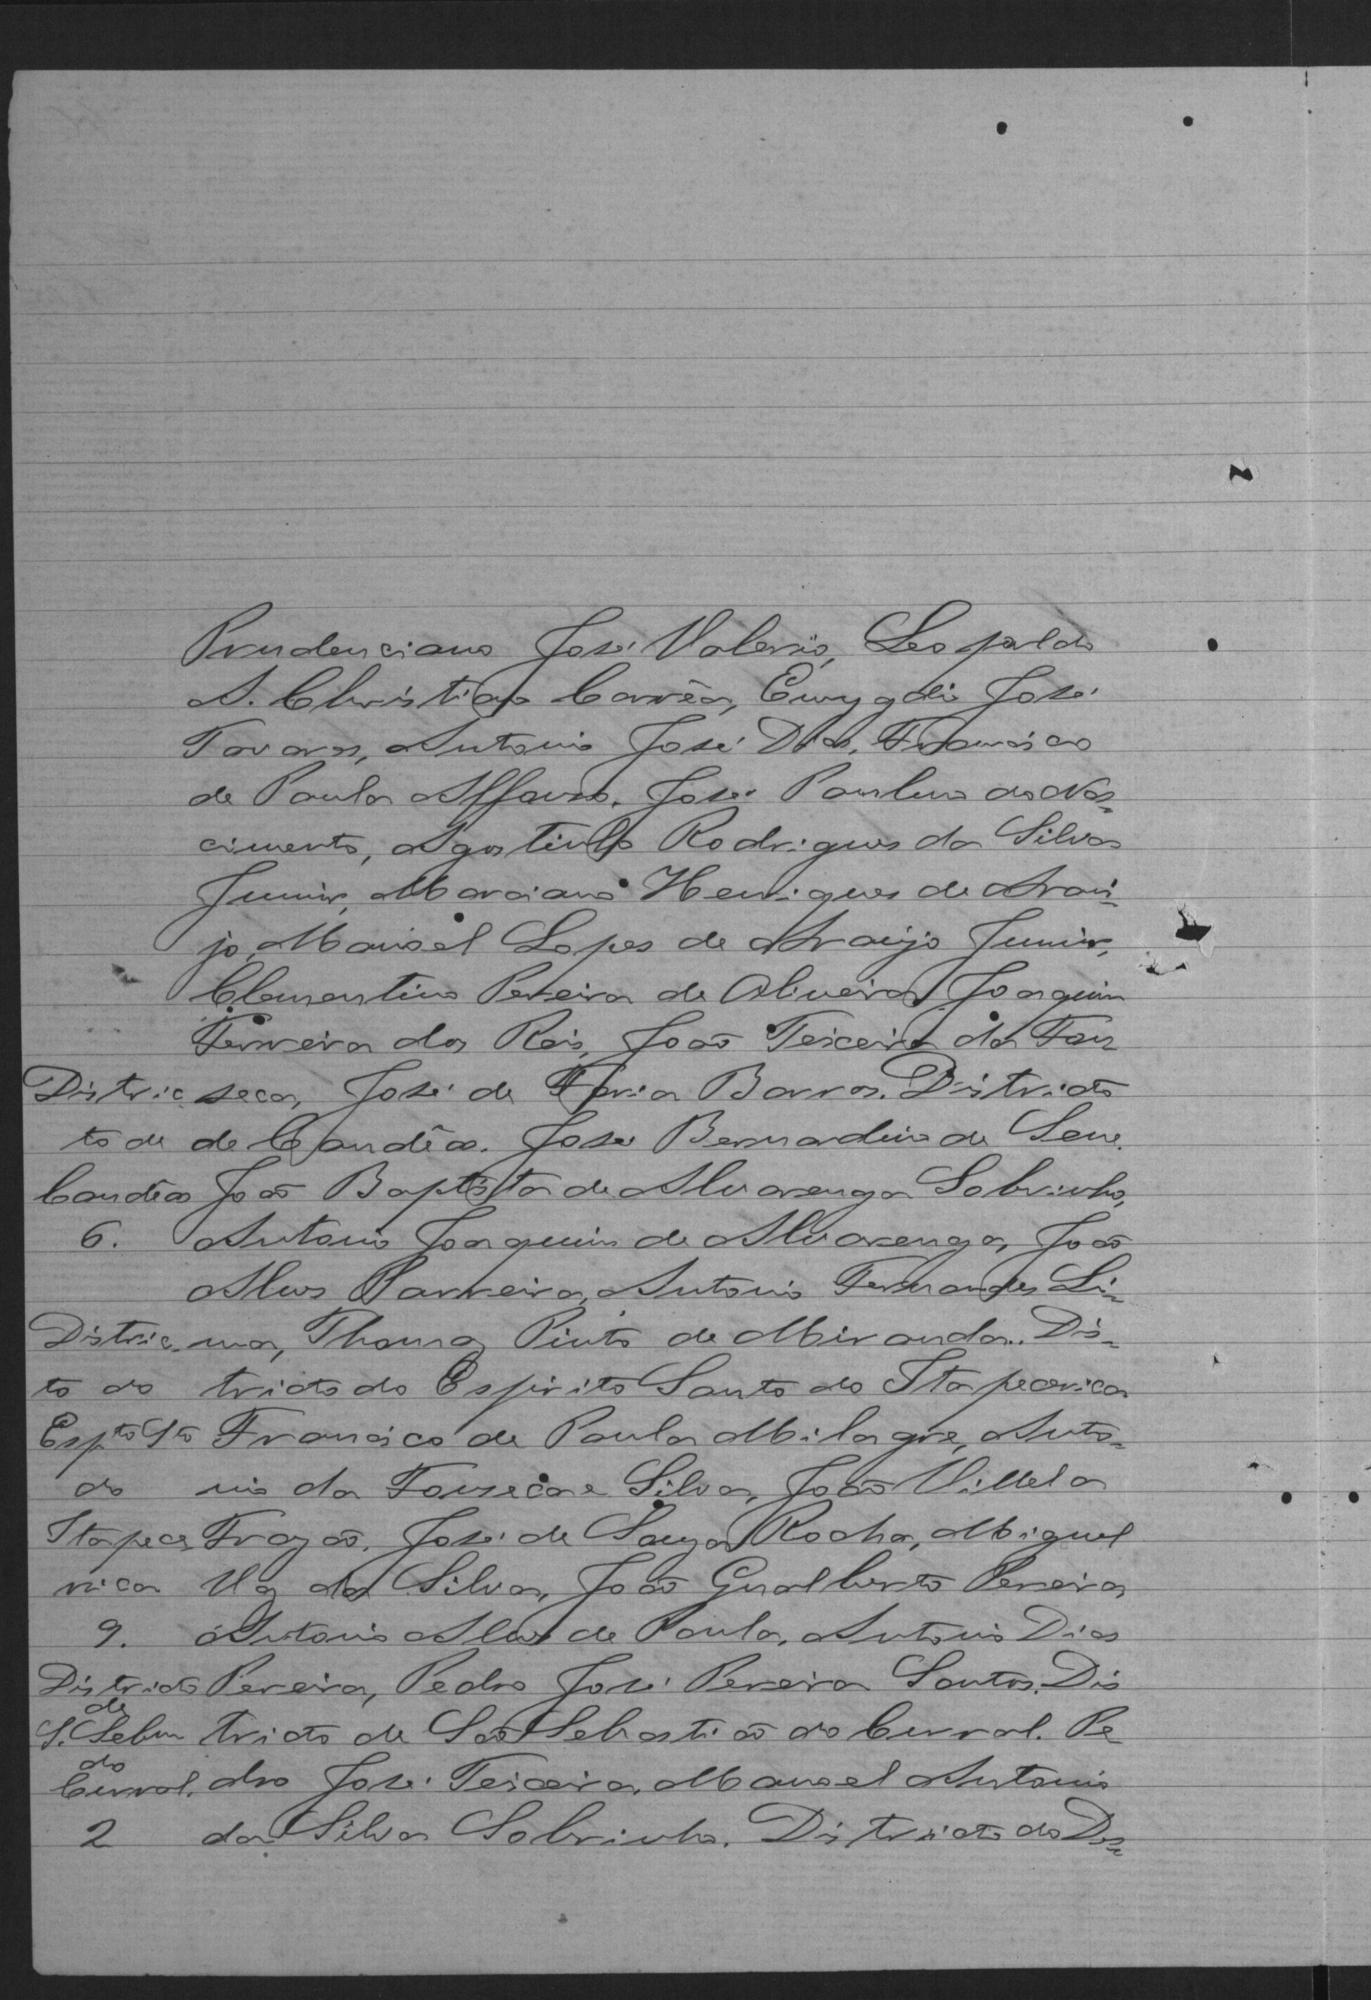 Prudenciano José Valerio, Leopoldo
A. Christiano Corrêa, Emygdio José
Tavares, Antonio José Dias, Francisco
de Paula Affonso, José Paulino do Nas-
cimento, Agostinho Rodrigues da Silva
Junior, Marciano Henriques de Arau-
jo, Manoel Lopes de Araujo Junior,
Clementino Pereira de Oliveira, Joaquim
Ferreira dos Reis, João Teixeira da Fon
Distric seca, José de Faria Barros. Districto
to de de Candêas. José Bernardino de Sene
Candêas João Baptista de Alvarenga Sobrinho,
6. Antonio Joaquim de Alvarenga, João
Alves Parreira, Antonio Fernandes Li-
Distric- ma, Thomaz Pinto de Miranda. Dis-
to do tricto do Espirito Santo do Itapecerica
Espto Sto Francisco de Paula Milagre, Anto-
do nio da Fonseca e Silva, João Villela
Itapece Frazão, José de Souza Rocha, Miguel
rica Vaz da Silva, João Gualberto Pereira,
9. Antonio Alves de Paula, Antonio Dias
Districto Pereira, Pedro José Pereira Santos. Dis
de
S. Sebm tricto de São Sebastião do Curral. Pe
do
Curral. dro José Teixeira, Manoel Antonio
2 da Silva Sobrinho. Districto do Des-